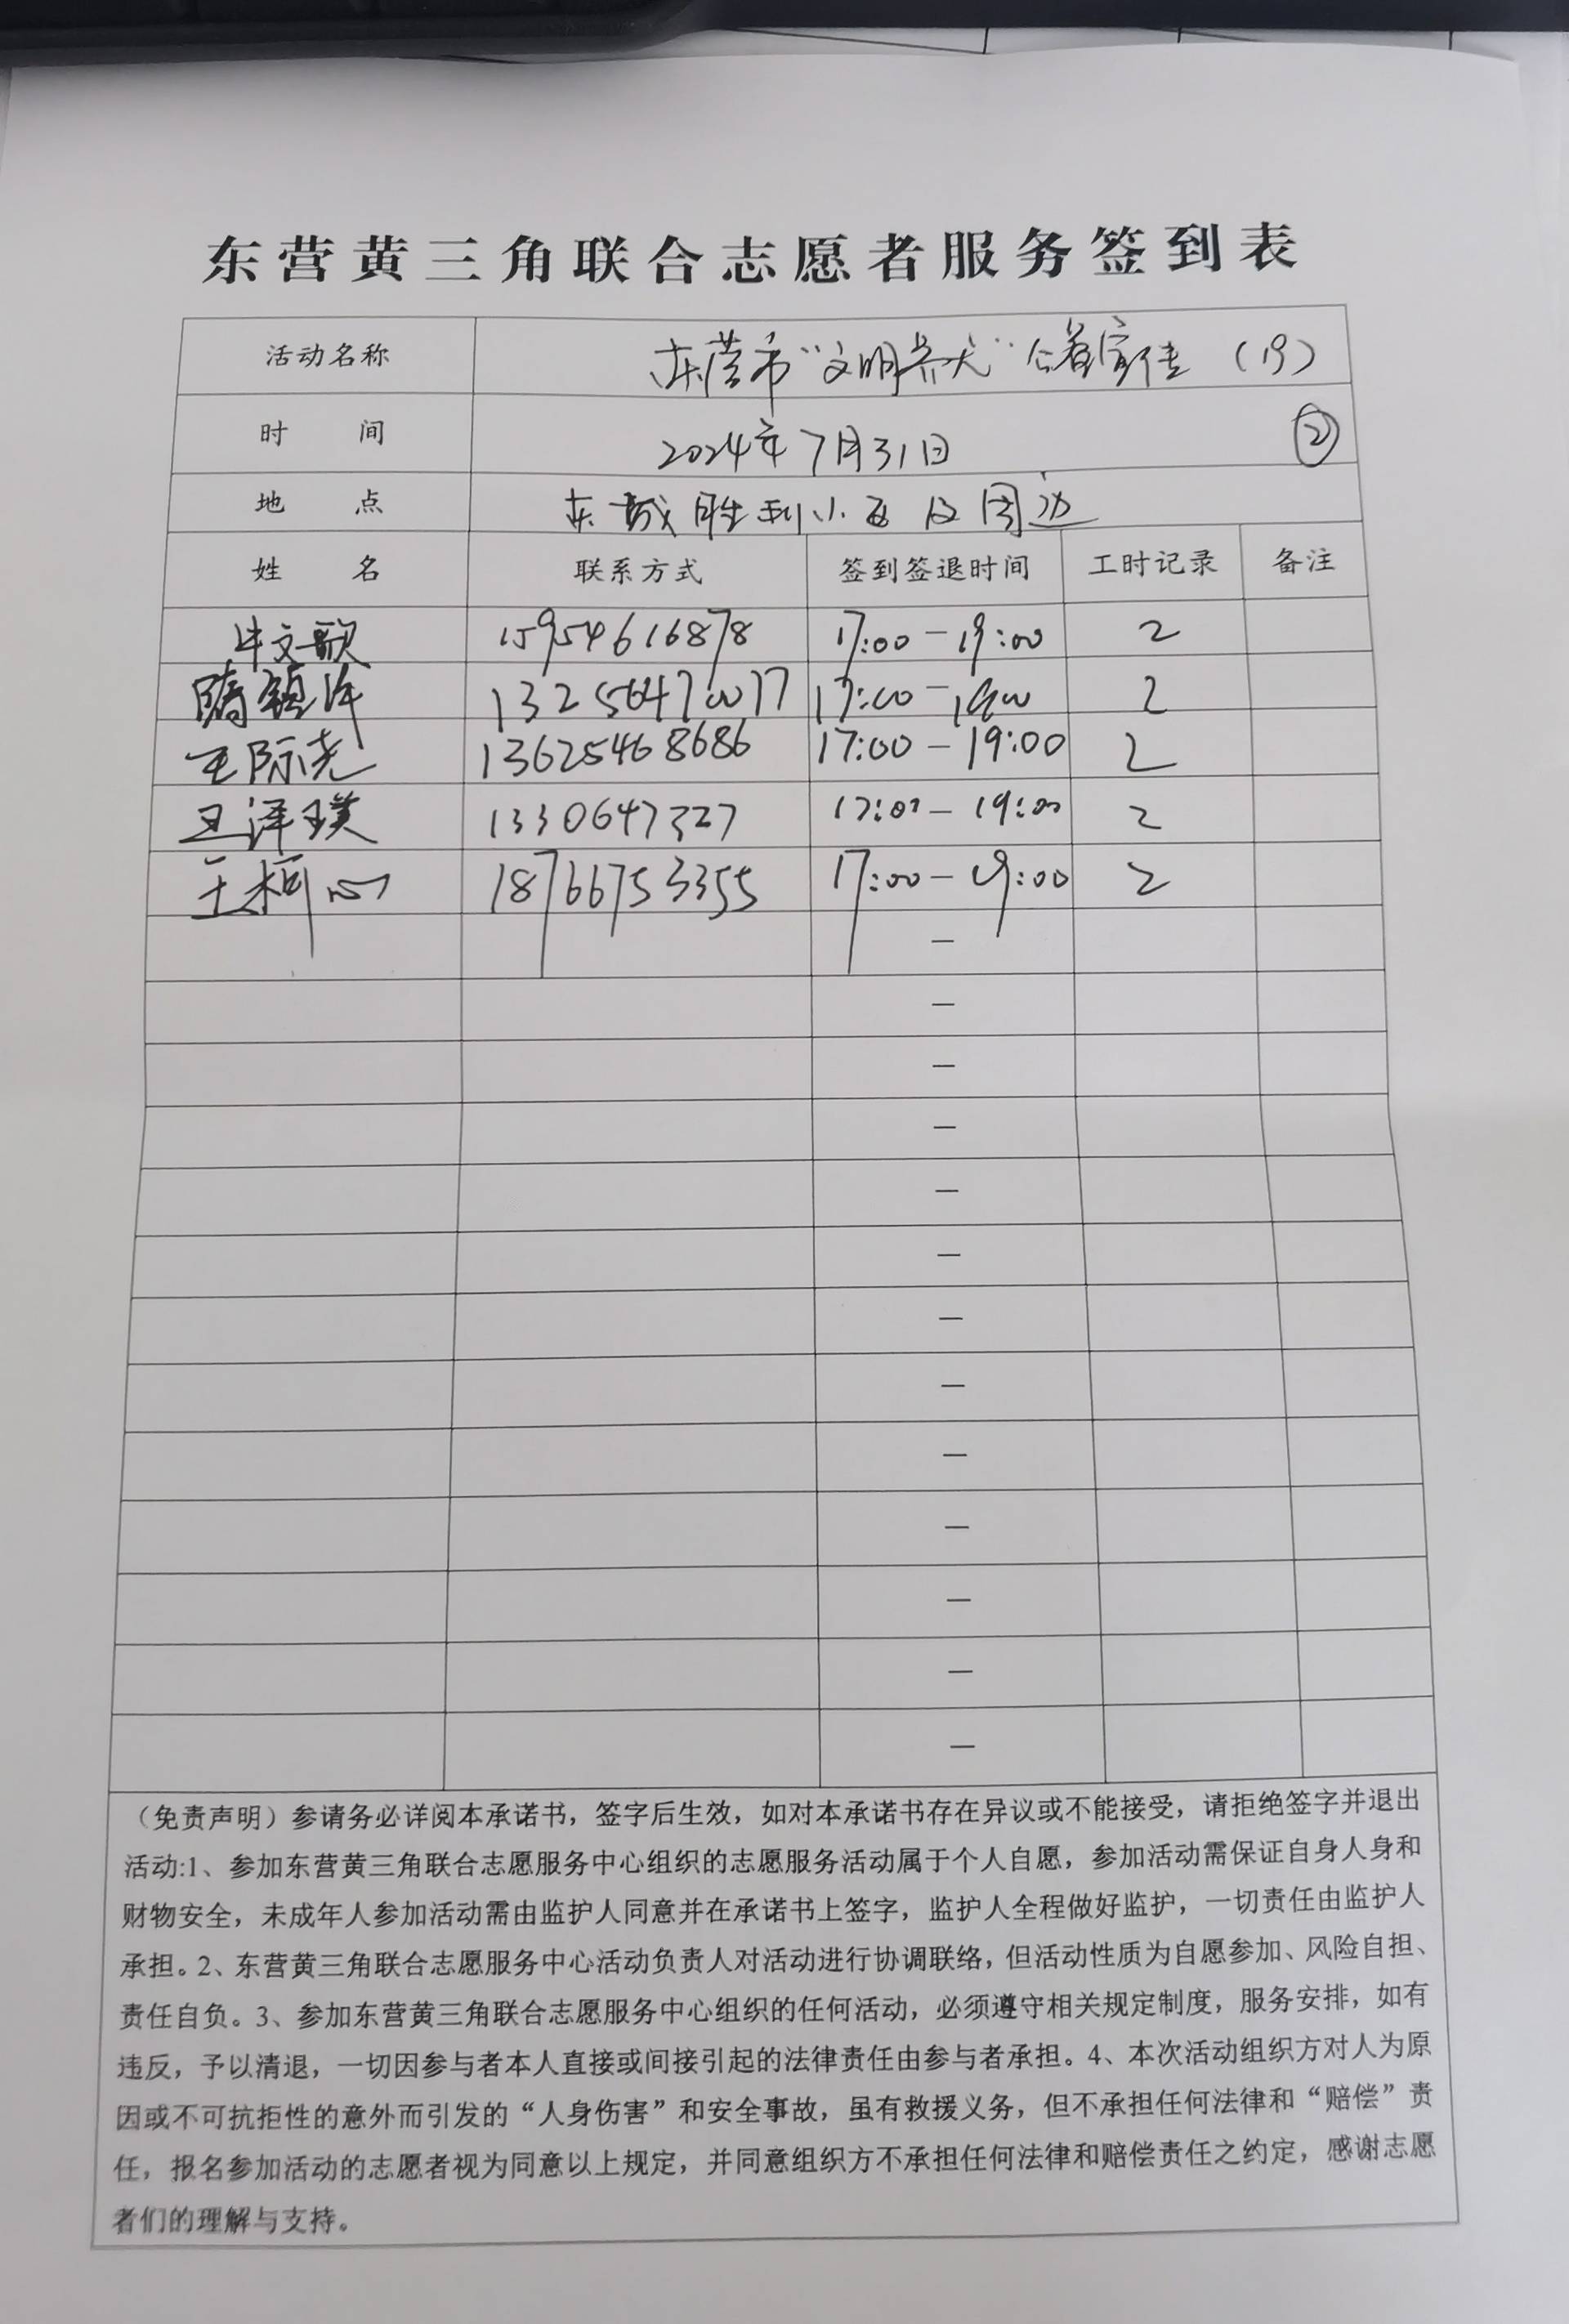 东营黄三角联合志愿者服务签到表
活动名称 东营市“文明养犬”公益宣传（19）
时 间 2024年7月31日 ②
地 点 东城胜利小区及周边
姓 名 联系方式 签到签退时间 工时记录 备注
牛文歌 15954616878 17:00-19:00 2
隋镇许 13256470077 17:00-19:00 2
王际尧 13625468686 17:00-19:00 2
王泽璞 1330647327 17:00-19:00 2
王柯心 18766753355 17:00-19:00 2
—
—
—
—
—
—
—
—
—
—
—
—
—
（免责声明）参请务必详阅本承诺书，签字后生效，如对本承诺书存在异议或不能接受，请拒绝签字并退出
活动:1、参加东营黄三角联合志愿服务中心组织的志愿服务活动属于个人自愿，参加活动需保证自身人身和
财物安全，未成年人参加活动需由监护人同意并在承诺书上签字，监护人全程做好监护，一切责任由监护人
承担。2、东营黄三角联合志愿服务中心活动负责人对活动进行协调联络，但活动性质为自愿参加、风险自担、
责任自负。3、参加东营黄三角联合志愿服务中心组织的任何活动，必须遵守相关规定制度，服务安排，如有
违反，予以清退，一切因参与者本人直接或间接引起的法律责任由参与者承担。4、本次活动组织方对人为原
因或不可抗拒性的意外而引发的“人身伤害”和安全事故，虽有救援义务，但不承担任何法律和“赔偿”责
任，报名参加活动的志愿者视为同意以上规定，并同意组织方不承担任何法律和赔偿责任之约定，感谢志愿
者们的理解与支持。